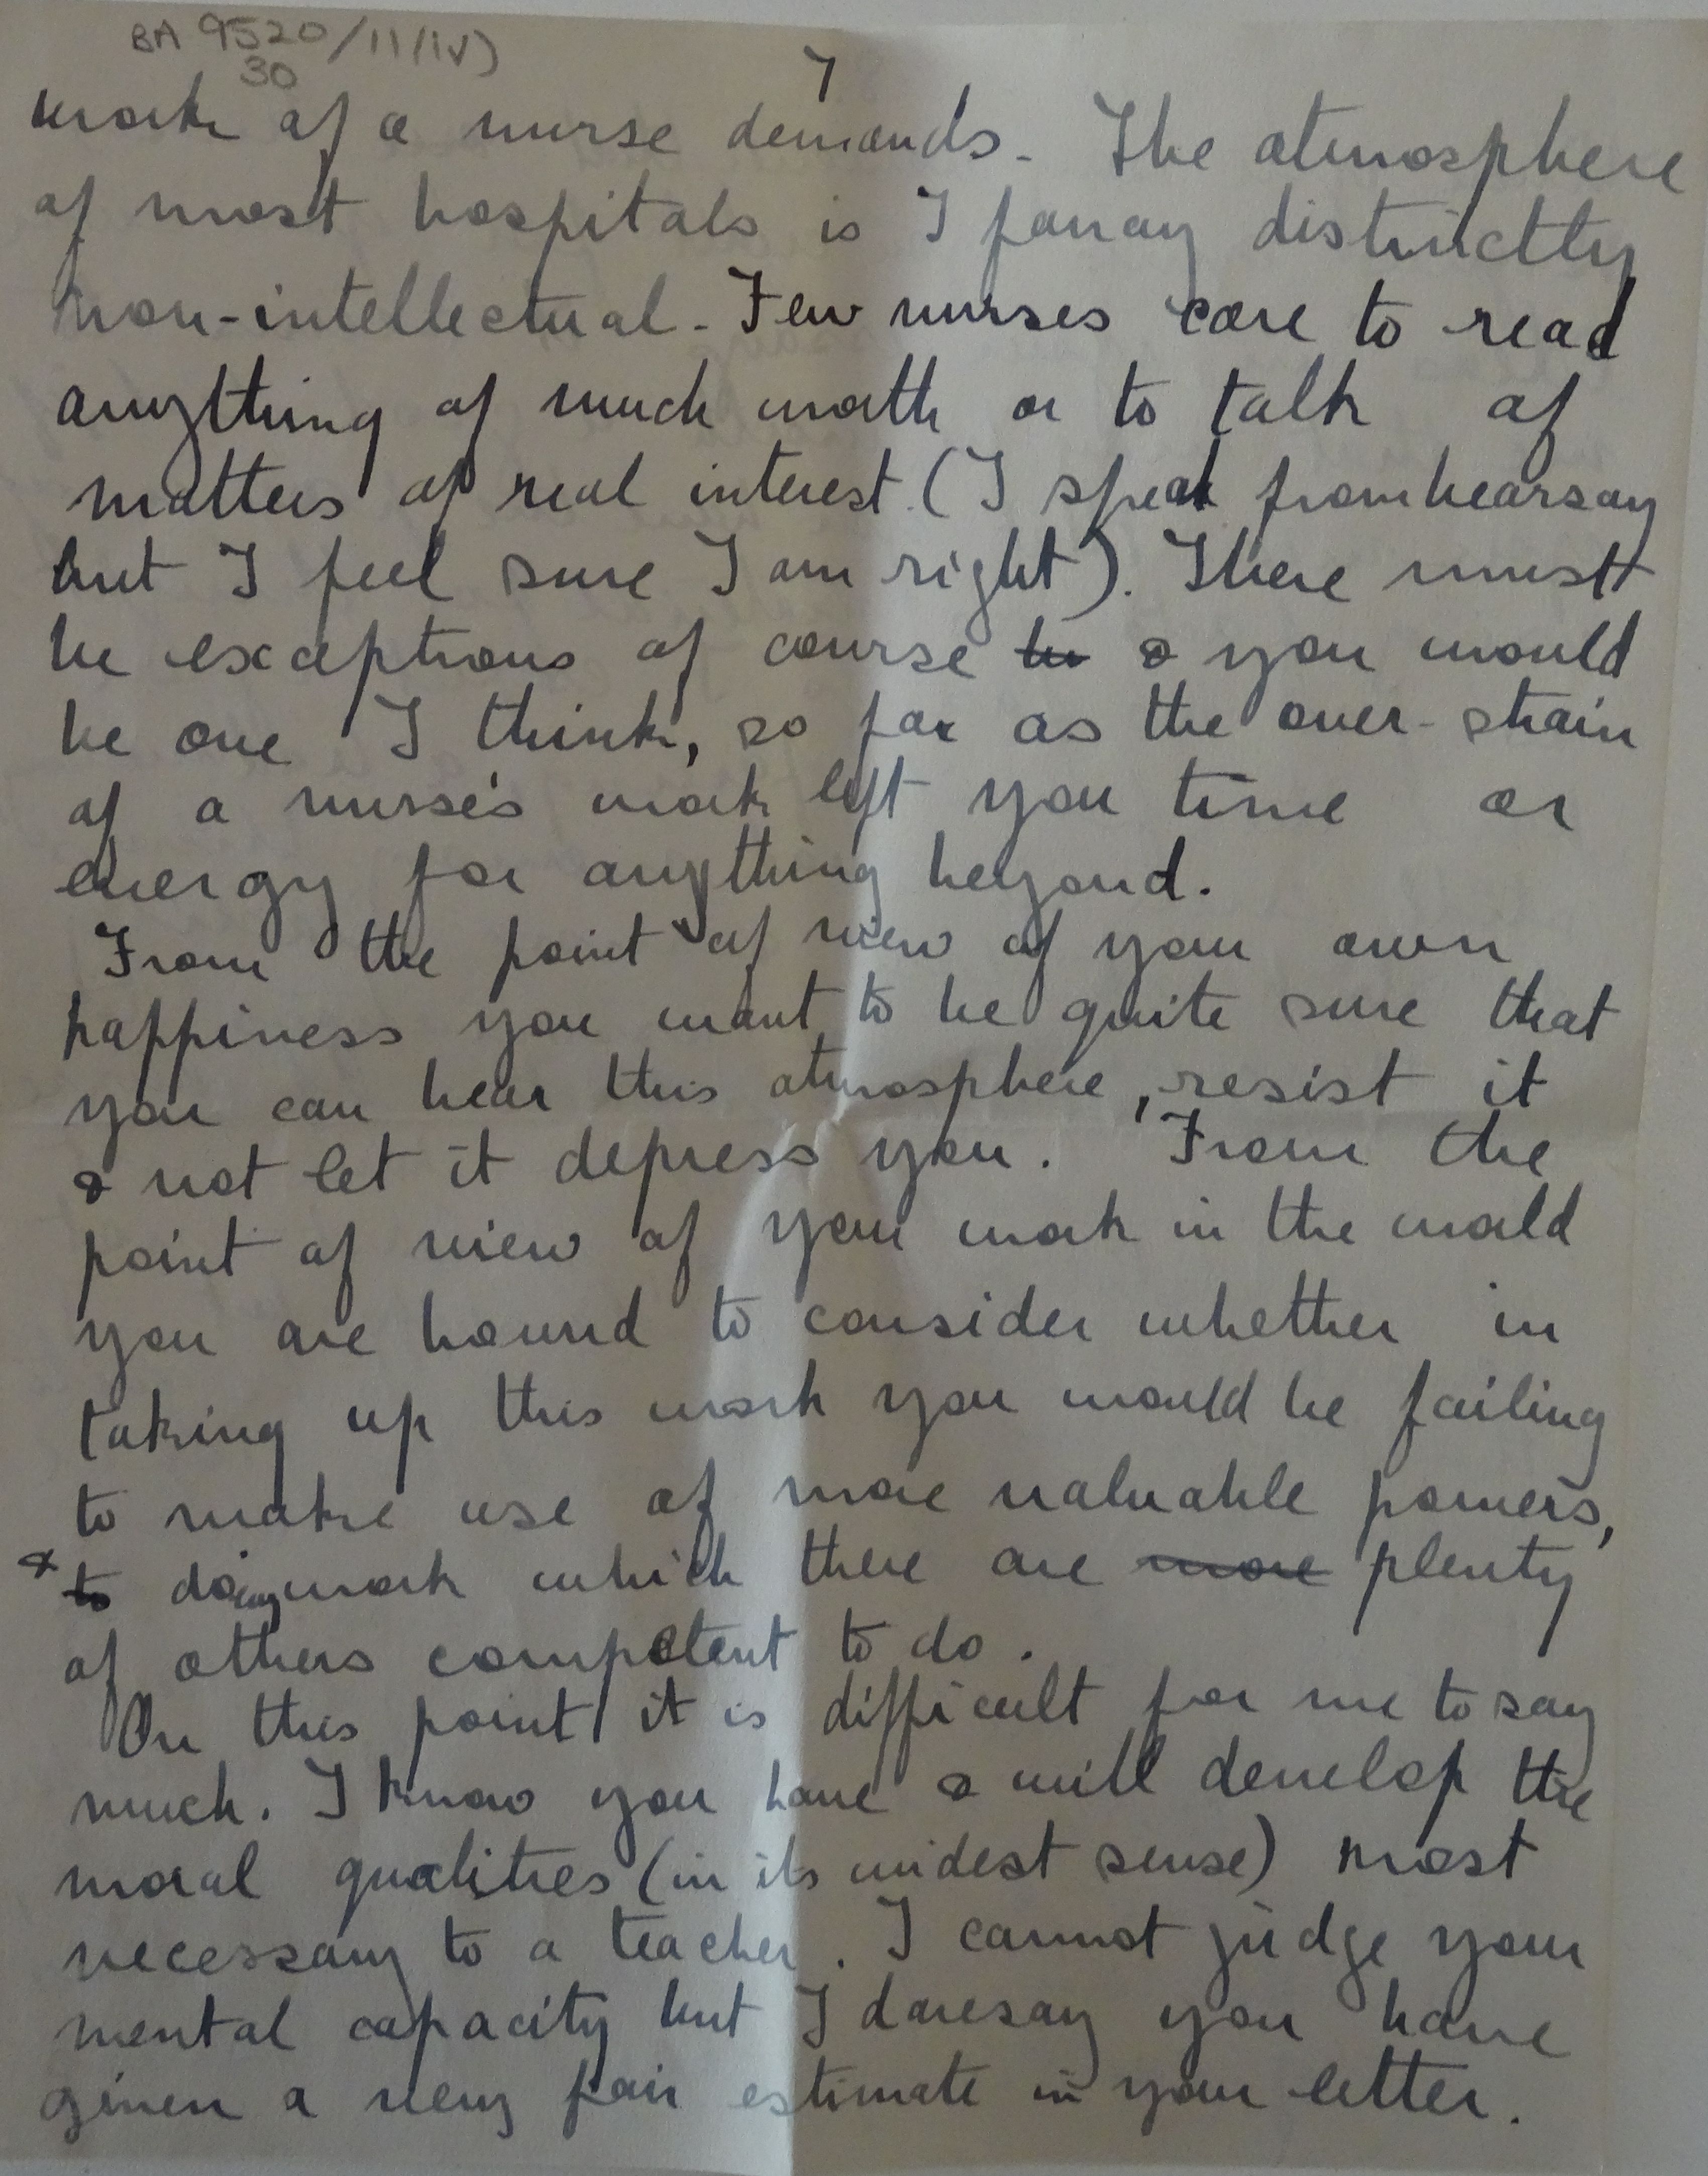 BA 9520/11(iv)
30
7
work of a nurse demands. The atmosphere
of most hospitals is I fancy distinctly
non-intellectual. Few nurses care to read
anything of much worth or to talk of
matters of real interest. (I speak from hearsay
but I feel sure I am right). There must
be exceptions of course & you would
be one I think, so far as the over-strain
of a nurse's work left you time or
energy for anything beyond.
From the point of view of your own
happiness you want to be quite sure that
you can bear this atmosphere, resist it
& not let it depress you. From the
point of view of your work in the world
you are bound to consider whether in
taking up this work you would be failing
to make use of more valuable powers,
& to doing work which there are more plenty
of others competent to do.
On this point it is difficult for me to say
much. I know you have & will develop the
moral qualities (in its widest sense) most
necessary to a teacher. I cannot judge your
mental capacity but I daresay you have
given a very fair estimate in your letter.